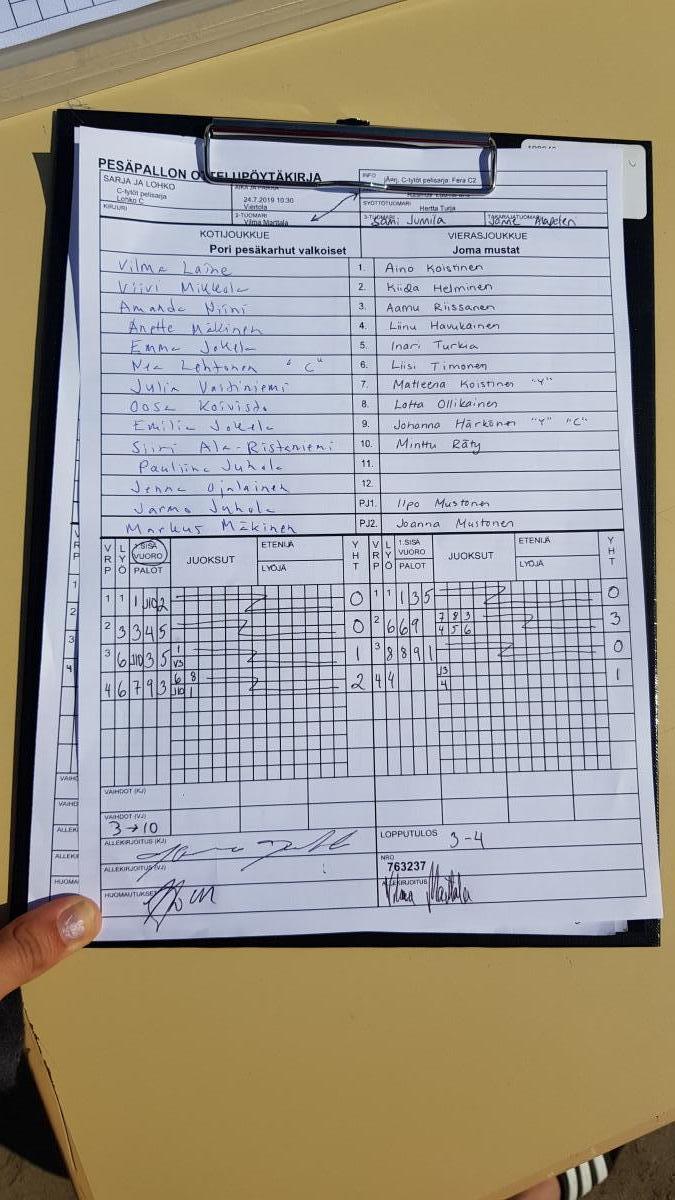 PESÄPALLON OTTELUPÖYTÄKIRJA
SARJA JA LOHKO
C-tytöt pelisarja
Lohko C
24.7.2019 10:30
Viertola
INFO
C-tytöt pelisarja: Fera C2
KIRJURI
2-TUOMARI
Vilma Marttala
SYÖTTÖTUOMARI
Hertta Turja
3-TUOMARI
Sami Jumila
TAKARAJATUOMARI
KOTIJOUKKUE VIERASJOUKKUE
Pori pesäkarhut valkoiset Joma mustat
Vilma Laine 1. Aino Koistinen
Viivi Mikkola 2. Kiida Helminen
Amanda Niini 3. Aamu Riissanen
Anette Mäkinen 4. Liinu Havukainen
Emma Jokela 5. Inari Turkia
Nea Lehtonen "C" 6. Liisi Timonen
Julia Vaitiniemi 7. Matleena Koistinen "Y"
Oosa Koivisto 8. Lotta Ollikainen
Emilia Jokela 9. Johanna Härkönen "Y" "C"
Siiri Ala-Ristaniemi 10. Minttu Räty
Pauliina Juhola 11.
Jenna Ojalainen 12.
Jarmo Juhola PJ1. Ilpo Mustonen
Markus Mäkinen PJ2. Joanna Mustonen
VRP LYÖ 1.SISÄ VUORO PALOT JUOKSUT ETENIJÄ LYÖJÄ YHT VRP LYÖ 1.SISÄ VUORO PALOT JUOKSUT ETENIJÄ LYÖJÄ YHT
1 1 1 J10 2 0 1 1 1 3 5 0
2 3 3 4 5 0 2 6 6 9 7 8 3 3
4 5 6
3 6 J10 3 5 1 1 3 8 8 9 1 0
V3
4 6 7 9 3 6 8 2 4 4 J3 1
J10 1 4
VAIHDOT (KJ)
VAIHDOT (VJ)
3 → 10
ALLEKIRJOITUS (KJ)
LOPPUTULOS 3-4
ALLEKIRJOITUS (VJ)
NRO
763237
HUOMAUTUKSET
ALLEKIRJOITUS
Vilma Marttala